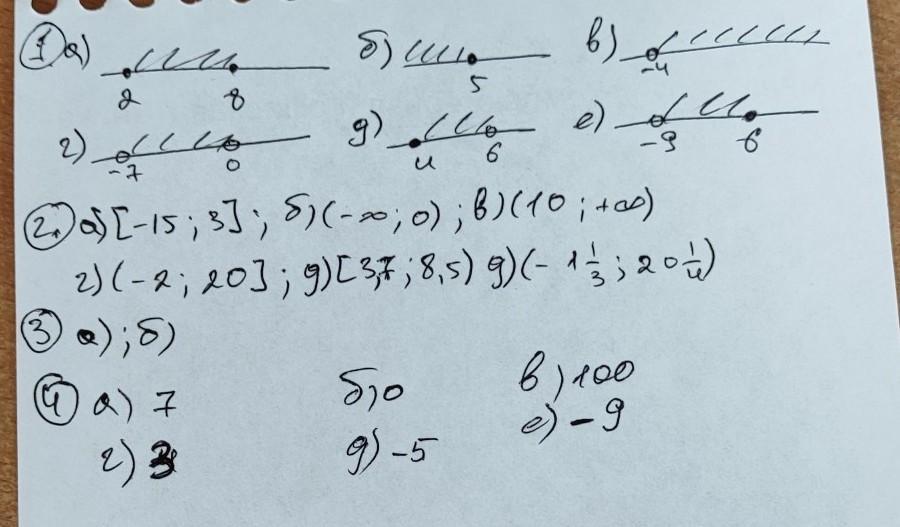 ① а) 2 8 б) 5 в) -4
г) -7 0 д) 4 6 е) -9 -6
②. а) [-15; 3]; б) (-∞; 0); в) (10; +∞)
г) (-2; 20]; д) [3,7; 8,5) д) (-1 1/3; 20 1/4)
③ а); б)
④ а) 7 б) 0 в) 100
г) 3 д) -5 е) -9